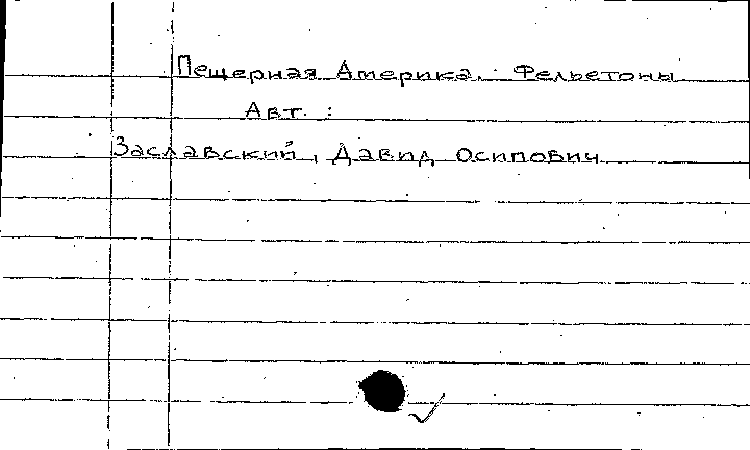 Пещерная Америка. Фельетоны
Авт. :
Заславский, Давид Осипович